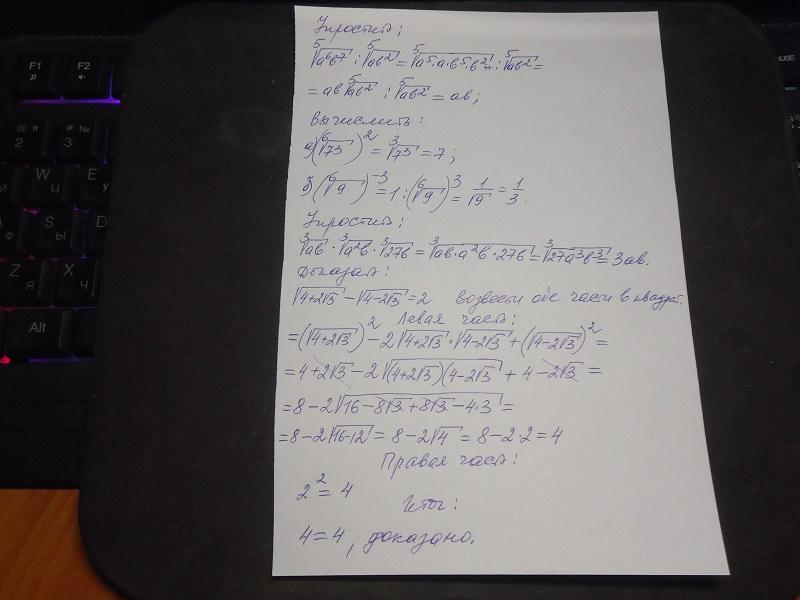 Упростить:
⁵√a⁶b⁷ : ⁵√ab² = ⁵√a⁵·a·b⁵·b² : ⁵√ab² =
= ab ⁵√ab² : ⁵√ab² = ab;
Вычислить:
а) (⁶√73)² = ³√73 = 7;
б) (⁶√9)⁻³ = 1 : (⁶√9)³ = 1/√9 = 1/3.
Упростить:
³√ab · ³√a²b · ³√27b = ³√ab·a²b·27b = ³√27a³b³ = 3ab.
Доказат:
√4+2√3 − √4−2√3 = 2 возвести обе части в квадрат.
Левая част:
= (√4+2√3)² − 2√4+2√3 · √4−2√3 + (√4−2√3)² =
= 4+2√3 − 2√(4+2√3)(4−2√3) + 4−2√3 =
= 8−2√16−8√3+8√3−4·3 =
= 8−2√16-12 = 8−2√4 = 8−2·2 = 4
Правая част:
2² = 4
Итог:
4 = 4, доказано.
F1
F2
@ "
2
# №
3
W
E У
Ф
S Ы
D
Z Я
X Ч
Alt